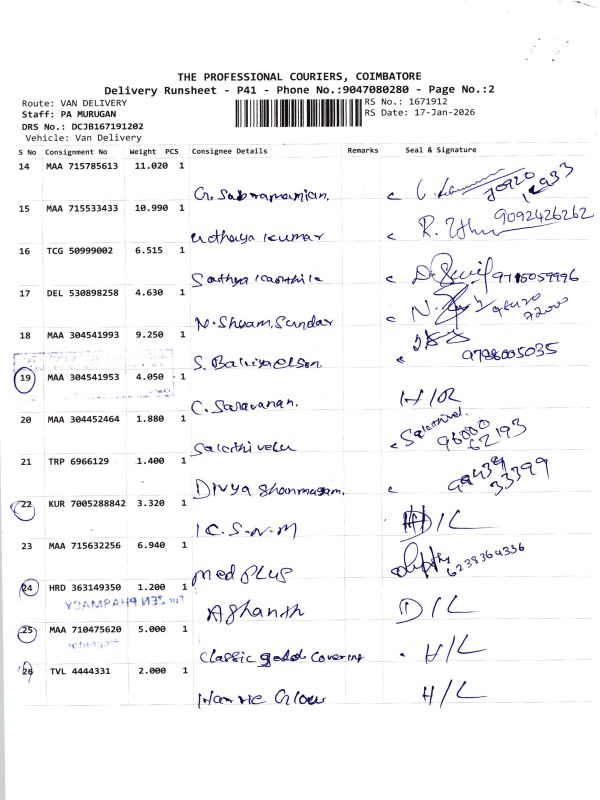 THE PROFESSIONAL COURIERS, COIMBATORE
Delivery Runsheet - P41 - Phone No.:9047080280 - Page No.:2
Route: VAN DELIVERY
Staff: PA MURUGAN
DRS No.: DCJB167191202
Vehicle: Van Delivery
RS No.: 1671912
RS Date: 17-Jan-2026
S No Consignment No Weight PCS Consignee Details Remarks Seal & Signature
14 MAA 715785613 11.020 1
G. Subramanian.
15 MAA 715533433 10.990 1
Udhaya Kumar R. 9092426262
16 TCG 50999002 6.515 1
Sathya
17 DEL 530898258 4.630 1
N. Shyam Sundar N.
18 MAA 304541993 9.250 1
S. 9798005035
19 MAA 304541953 4.050 1
C. Saravanan. H/R
20 MAA 304452464 1.880 1
Sakthivelu Sakthivel. 96000 62193
21 TRP 6966129 1.400 1
Divya Shanmugam. 99439 33399
22 KUR 7005288842 3.320 1
K.S.N.M D/L
23 MAA 715632256 6.940 1
Med PLUS 6238364336
24 HRD 363149350 1.200 1
For ZEN PHARMACY
D/L
25 MAA 710475620 5.000 1
Classic gold Covering H/L
26 TVL 4444331 2.000 1
H/L